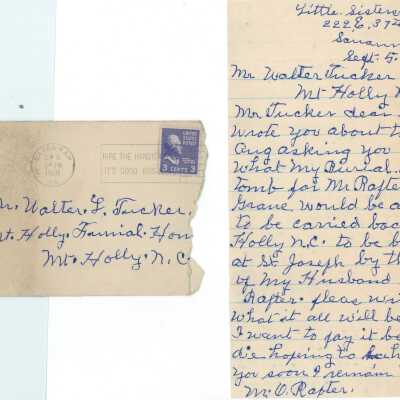 SAVANNAH
HIRE THE HANDIC
IT'S GOOD BUS
UNITED STATES
POSTAGE
3 CENTS 3
Mr. Walter L. Tucker.
Mt. Holly. Funial. Hom
Mt. Holly. N.C.
Little. Sisters
222 E, 37
Savann
Sept. 5.
Mr Walter Tucker
Mt Holly N
Mr Tucker dear
Wrote you about t
Aug asking you
What My Burial.
Tomb for Mr Rafter
Grave would be a
to be carried bac
Holly N.C. to be b
at St. Joseph by th
of My Husband
Rafter. pleas wri
what it all will be
I want to pay it be
die hoping to h
you soon I remain
M. O. Rafter.